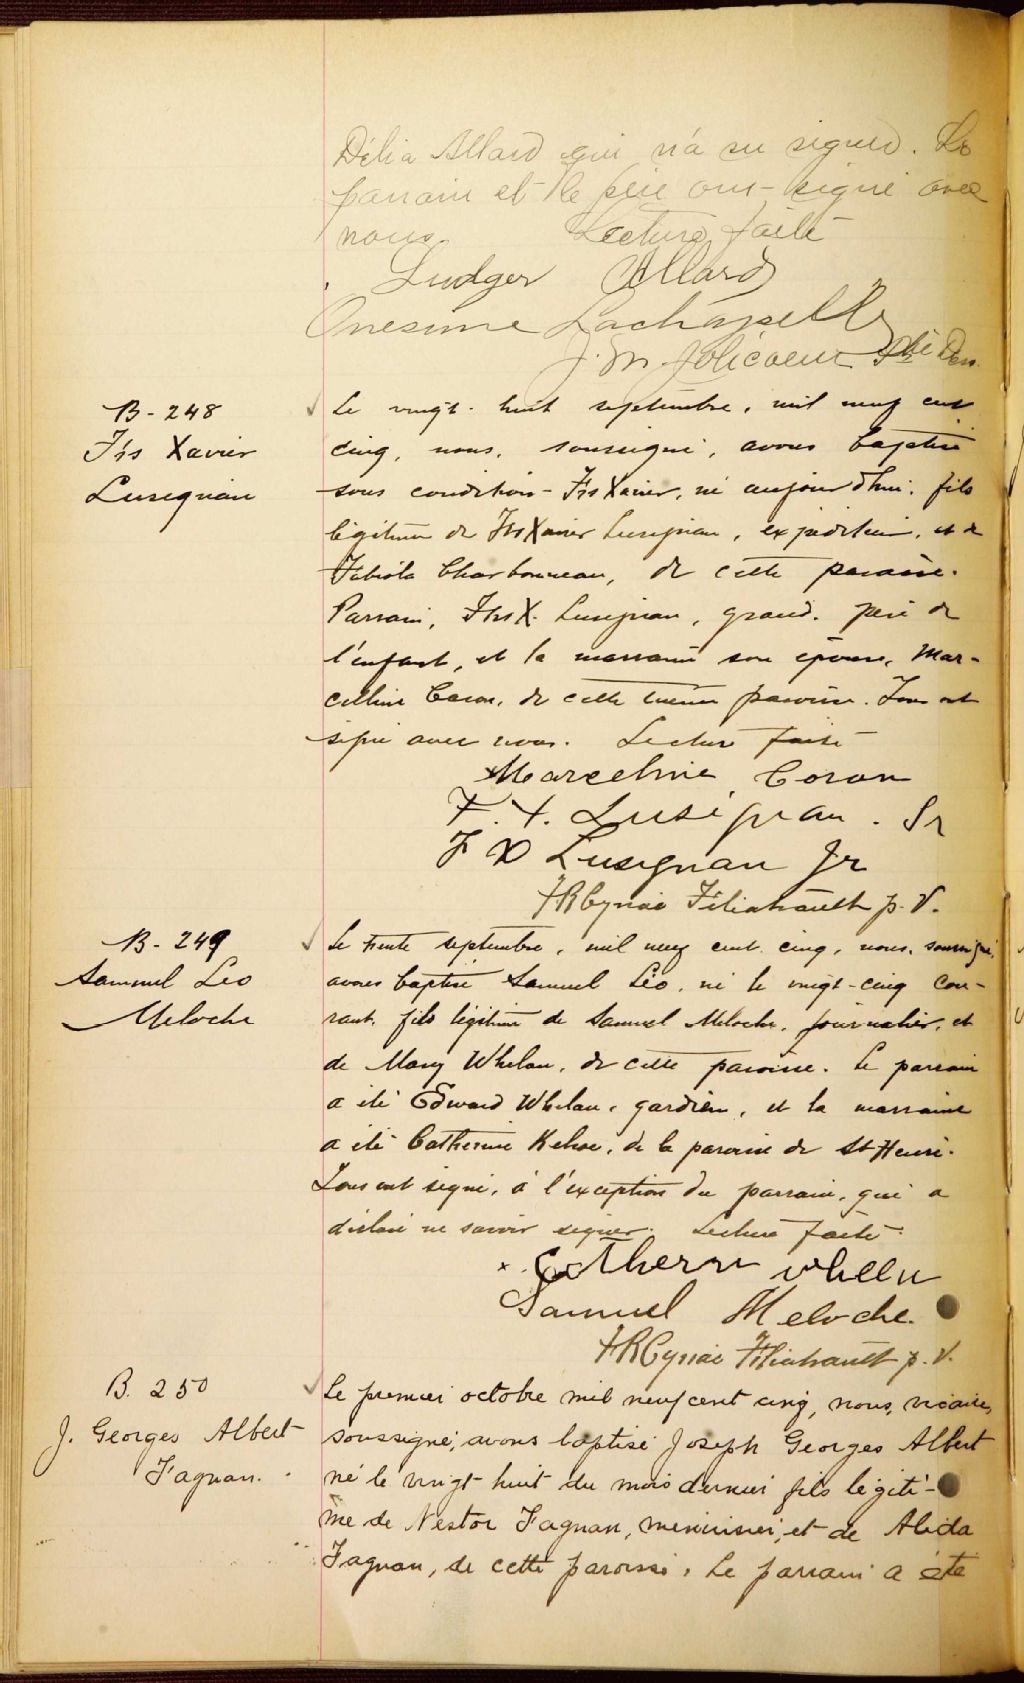 Délia Allard qui n'a su signer. Le
parrain et le père ont signé avec
nous. Lecture faite
Ludger Allard
Onesime Lachapelle
J. M. Jolicoeur Ptre
B - 248
Frs Xavier
Lusignan
Le vingt-huit septembre, mil neuf cent
cinq, nous, soussigné, avons baptisé
sous condition - Frs Xavier, né aujourd'hui, fils
légitime de Frs Xavier Lusignan, expéditeur, et de
Fabiola Charbonneau, de cette paroisse.
Parrain, Frs X. Lusignan, grand-père de
l'enfant, et la marraine son épouse, Mar-
celline Caron, de cette même paroisse. Tous ont
signé avec nous. Lecture faite
Marceline Coron
F. X. Lusignan. Sr
F X Lusignan Jr
Filiatrault p. v.
B - 249
Samuel Leo
Meloche
Le trente septembre, mil neuf cent cinq, nous, soussigné,
avons baptisé Samuel Léo, né le vingt-cinq cou-
rant, fils légitime de Samuel Meloche, journalier, et
de Mary Whelan, de cette paroisse. Le parrain
a été Edward Whelan, gardien, et la marraine
a été Catherine Kehoe, de la paroisse de St Henri.
Tous ont signé, à l'exception du parrain, qui a
déclaré ne savoir signer. Lecture faite
x. Catherin whelen
Samuel Meloche.
Filiatrault p. v.
B. 250
J. Georges Albert
Fagnan.
Le premier octobre mil neuf cent cinq, nous, vicaire,
soussigné, avons baptisé Joseph Georges Albert
né le vingt huit du mois dernier fils légiti-
me de Nestor Fagnan, menuisier, et de Alida
Fagnan, de cette paroisse. Le parrain a été